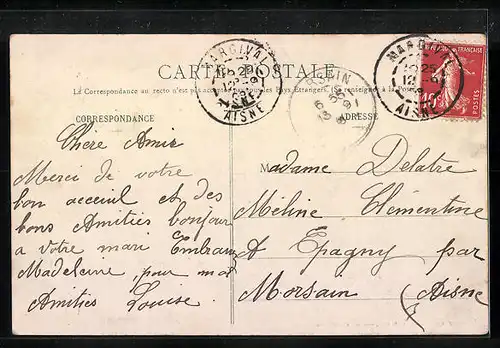 CARTE POSTALE
La Correspondance au recto n'est pas acceptée par tous les Pays Etrangers. (Se renseigner à la Poste)
CORRESPONDANCE
ADRESSE
MARGIVAL
AISNE
MARGIVAL
AISNE
10
Chère Amie
Merci de votre
bon acceuil et des
bons Amitiés bonjour
a votre mari Embrasse
Madeleine, pour moi
Amities Louise.
Madame Delatre
Méline Clémentine
A Epagny par
Morsain (Aisne